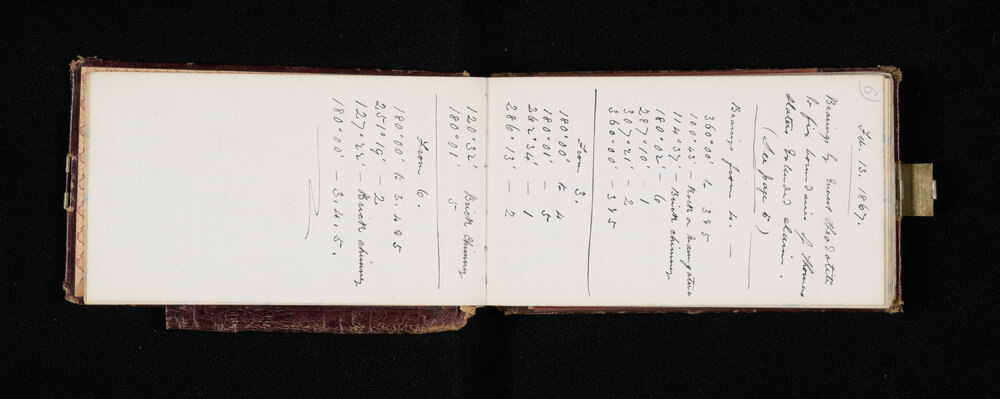 6)
Feb. 13. 1867.
Bearings by Theodolite
to fix boundaries of Thomas
Slater extended claim.
(See page 5)
Bearings from 4. —
360°00' to 3 & 5
100°43' - Rock on
114°37' - Brick chimney
180°02' - 6
287°10' - 1
307°21' - 2
360°00' - 3 & 5
From 3.
180°00' to 4
180°01' - 5
262°34' - 1
286°13' - 2
120°32' Brick Chimney
180°01' 5
From 6.
180°00' to 3. 4 & 5
251°19' - 2
127°22' - Brick chimney
180°00' - 3. 4. 5.